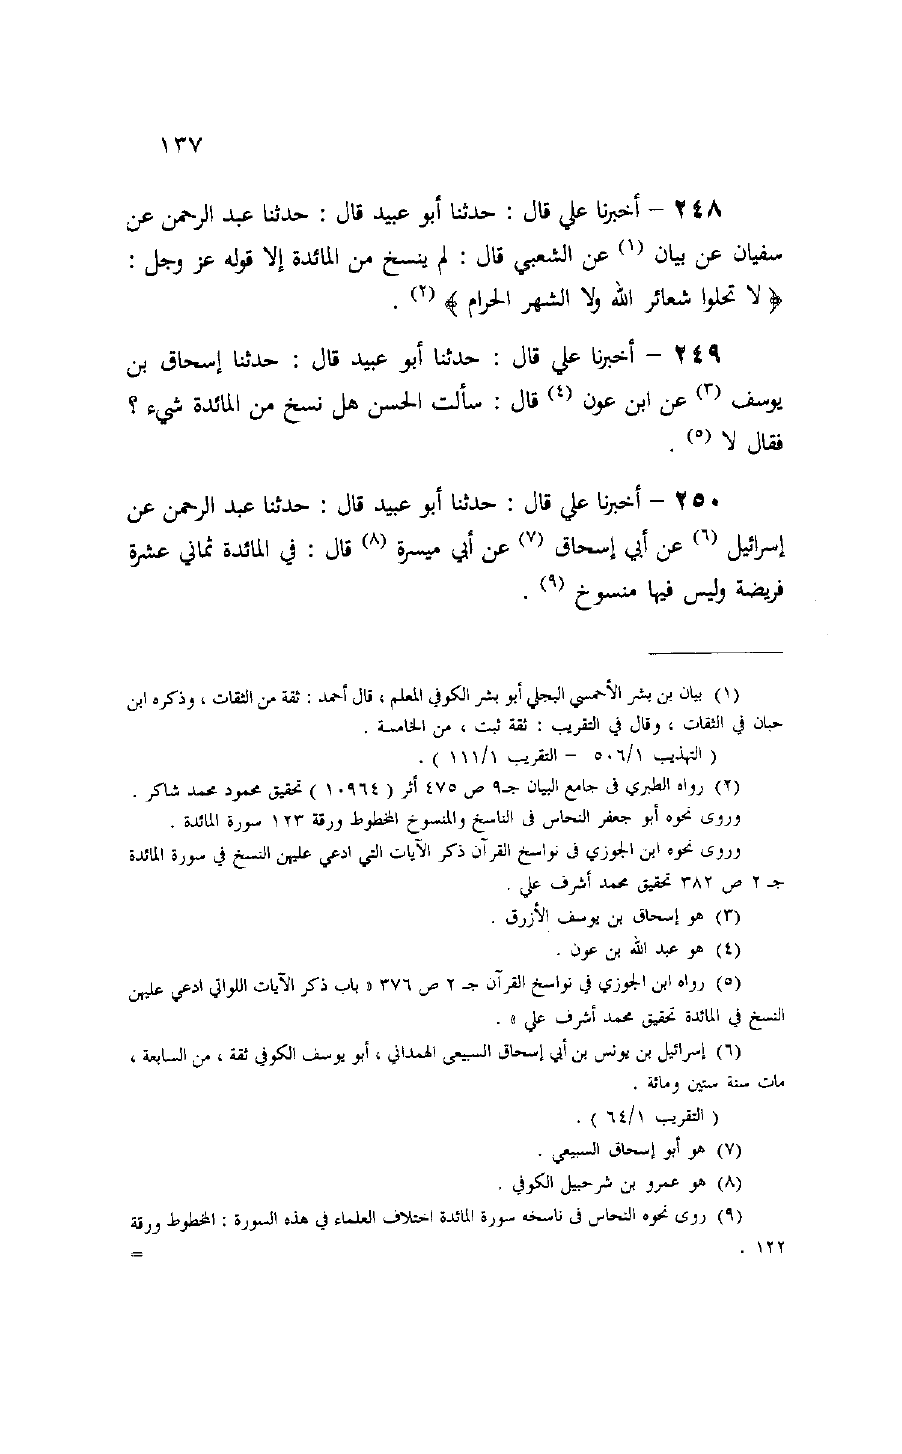 ١٣٧
٢٤٨ – أخبرنا علي قال : حدثنا أبو عبيد قال : حدثنا عبد الرحمن عن
سفيان عن بيان (١) عن الشعبي قال : لم ينسخ من المائدة إلا قوله عز وجل :
﴿ لا تحلوا شعائر الله ولا الشهر الحرام ﴾ (٢) .
٢٤٩ – أخبرنا علي قال : حدثنا أبو عبيد قال : حدثنا إسحاق بن
يوسف (٣) عن ابن عون (٤) قال : سألت الحسن هل نسخ من المائدة شيء ؟
فقال لا (٥) .
٢٥٠ – أخبرنا علي قال : حدثنا أبو عبيد قال : حدثنا عبد الرحمن عن
إسرائيل (٦) عن أبي إسحاق (٧) عن أبي ميسرة (٨) قال : في المائدة ثماني عشرة
فريضة وليس فيها منسوخ (٩) .
(١) بيان بن بشر الأحمسي البجلي أبو بشر الكوفي المعلم ، قال أحمد : ثقة من الثقات ، وذكره ابن
حبان في الثقات ، وقال في التقريب : ثقة ثبت ، من الخامسة .
( التهذيب ٥٠٦/١ – التقريب ١١١/١ ) .
(٢) رواه الطبري فى جامع البيان جـ٩ ص ٤٧٥ أثر ( ١٠٩٦٤ ) تحقيق محمود محمد شاكر .
وروى نحوه أبو جعفر النحاس فى الناسخ والمنسوخ المخطوط ورقة ١٢٣ سورة المائدة .
وروى نحوه ابن الجوزي فى نواسخ القرآن ذكر الآيات التي ادعي عليهن النسخ في سورة المائدة
جـ ٢ ص ٣٨٢ تحقيق محمد أشرف علي .
(٣) هو إسحاق بن يوسف الأزرق .
(٤) هو عبد الله بن عون .
(٥) رواه ابن الجوزي في نواسخ القرآن جـ ٢ ص ٣٧٦ « باب ذكر الآيات اللواتي ادعي عليهن
النسخ في المائدة تحقيق محمد أشرف علي » .
(٦) إسرائيل بن يونس بن أبي إسحاق السبيعي الهمداني ، أبو يوسف الكوفي ثقة ، من السابعة ،
مات سنة ستين ومائة .
( التقريب ٦٤/١ ) .
(٧) هو أبو إسحاق السبيعي .
(٨) هو عمرو بن شرحبيل الكوفي .
(٩) روى نحوه النحاس فى ناسخه سورة المائدة اختلاف العلماء في هذه السورة : المخطوط ورقة
١٢٢ . =